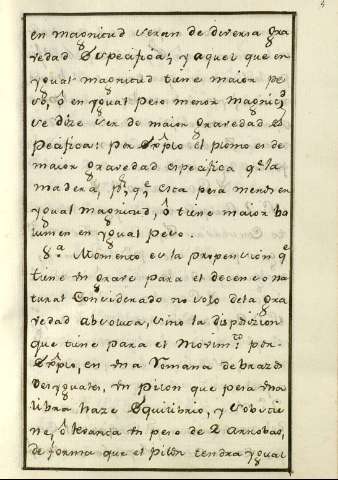 en magnitud seran de diversa gra
vedad Espesifica; y aquel que en
ygual magnitud tiene maior pe
so, ô en ygual peso menor magnitd
se dize ser de maior gravedad es
pecifica: por explo el plomo es de
maior gravedad especifica qe la
madera, pr qe esta pesa menos en
ygual magnitud, ô tiene maior bo
lumen en ygual peso.
8.a Momento es la propension qe
tiene vn grave para el decenso na
tural Considerado no solo dela gra
vedad absoluta, sino la disposizion
que tiene para el Movimto por
Explo, en vna Romana de brazos
Desyguales, vn pilon que pesa vna
libra haze Equilibrio, y sobstie
ne, ô levanta vn peso de 2 arrobas,
de forma que el Pilon tendra ygual